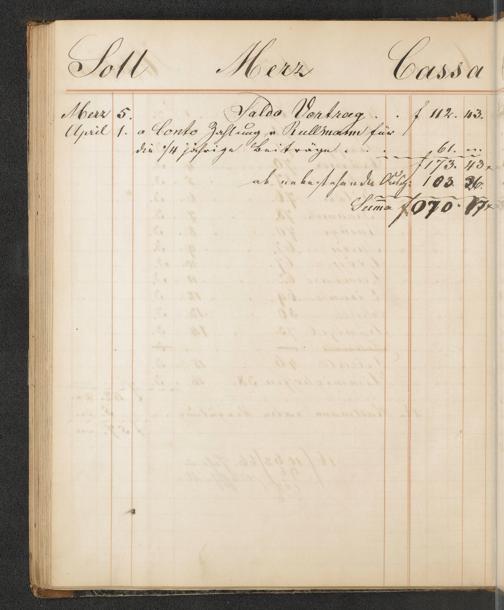 Soll Merz Cassa
Merz 5. Saldo Vortrag . . f 112. 43.
April 1. a Conto Zahlung v Rullmann für
die 1/4 jährige Beiträge . . . 61. —
f 173. 43
ab nebenstehende 103
Suma f 070. 17